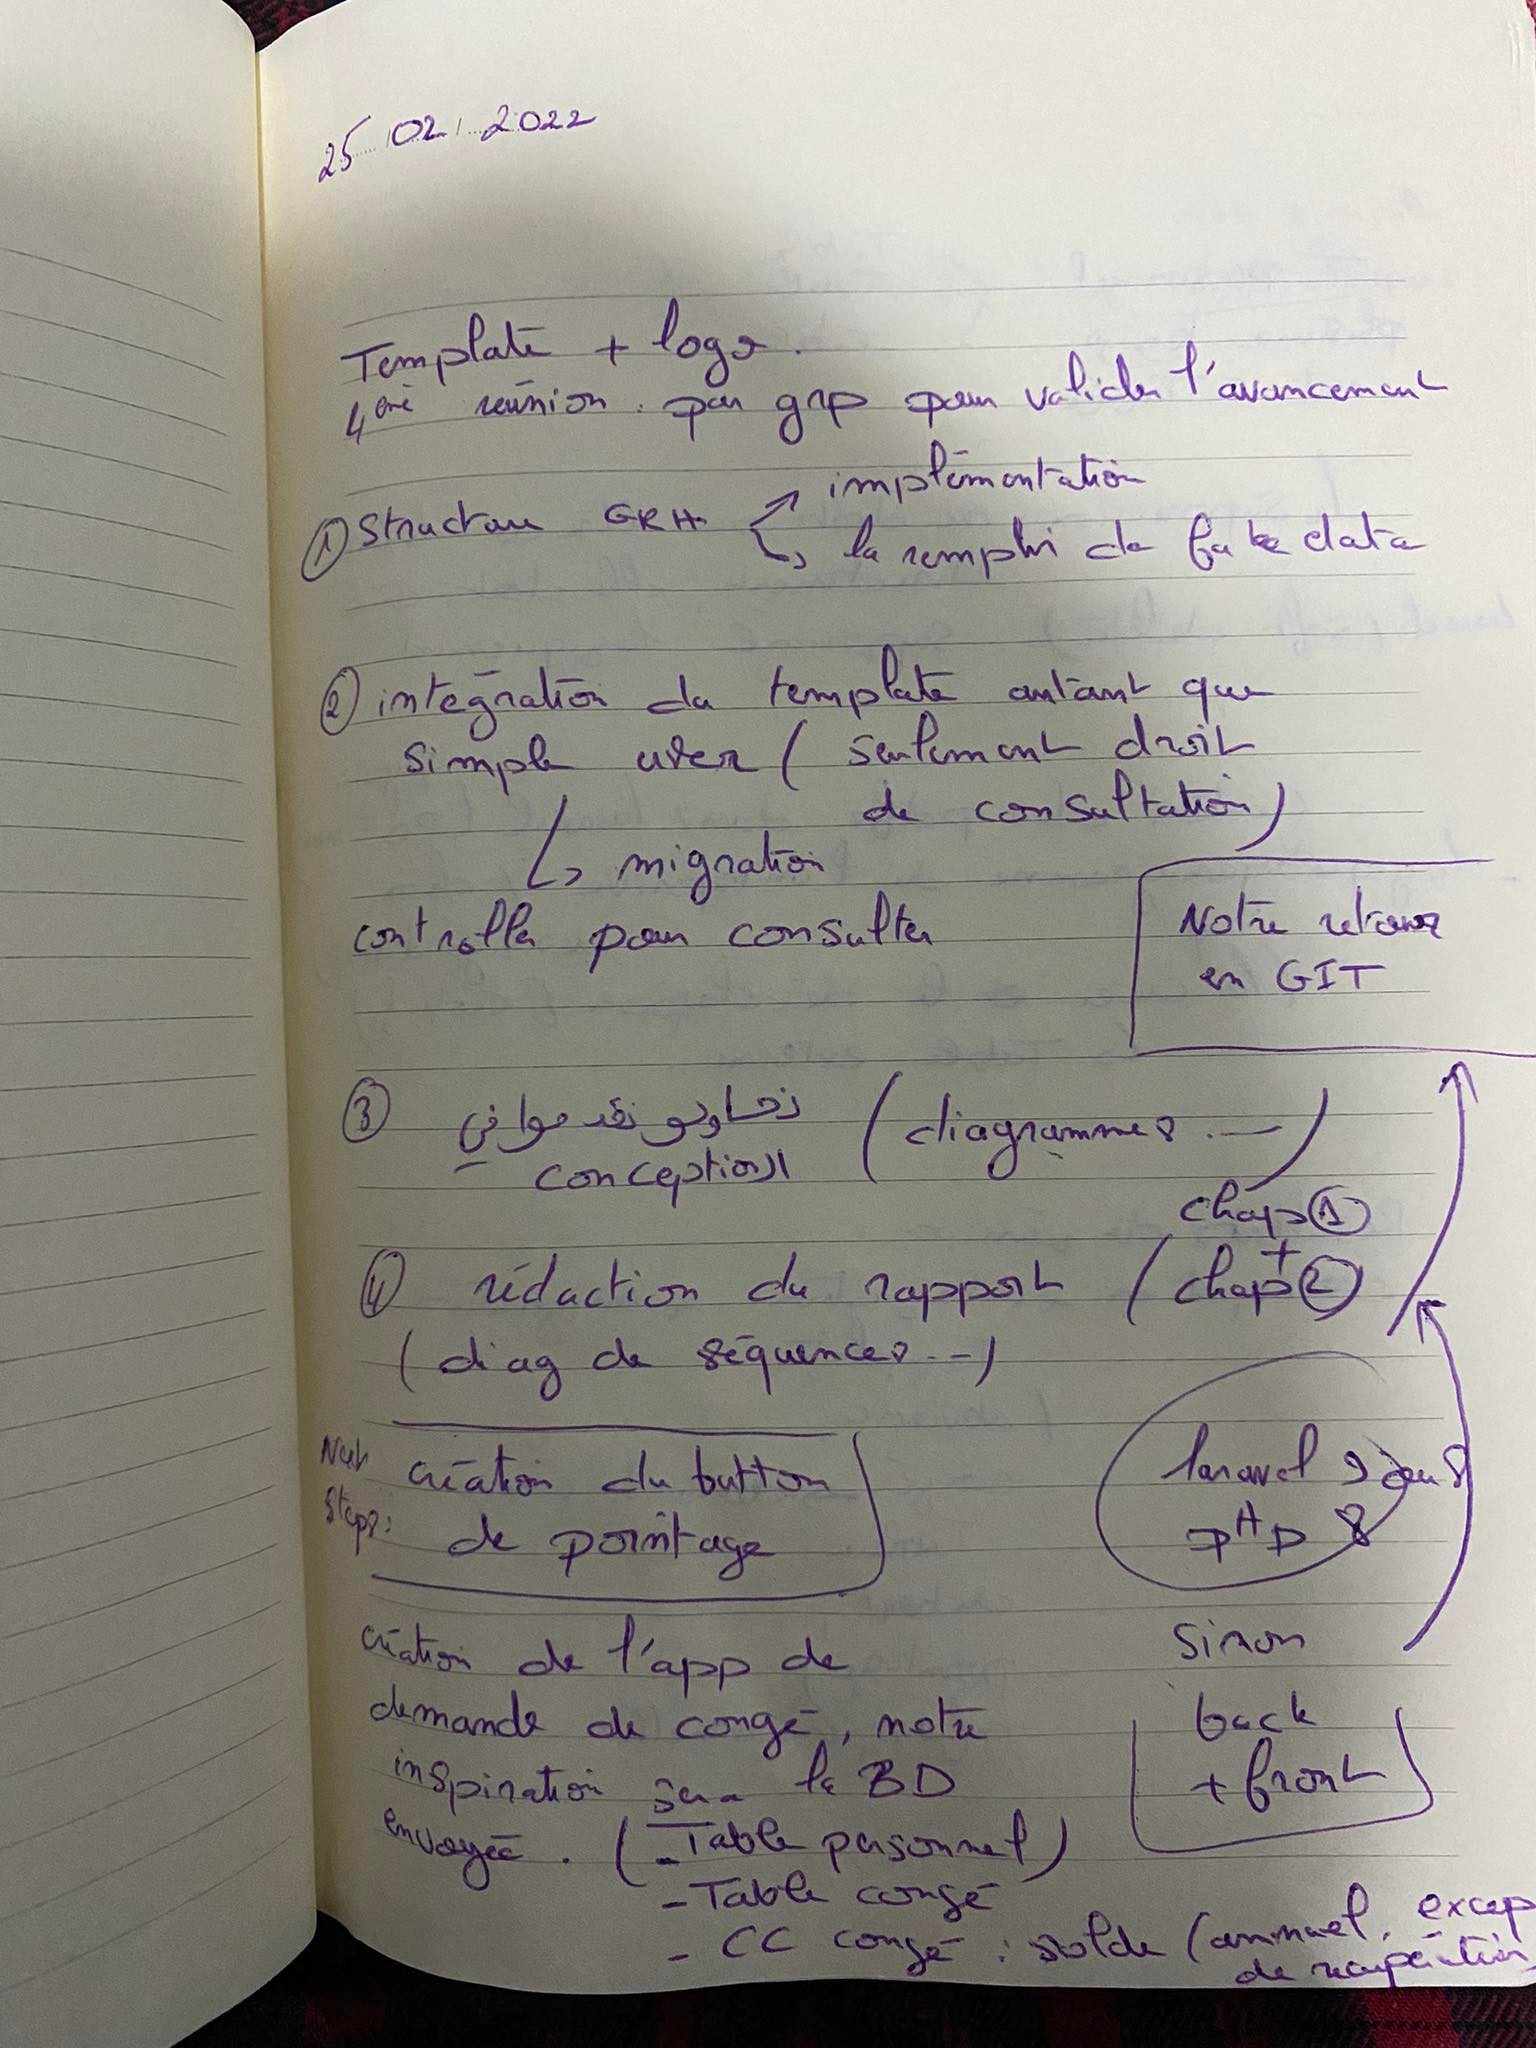 25 / 02 / 2022
Template + logo.
4ème réunion : par grp pour valider l'avancement
① Structure GRH
↗ implémentation
↳ la rempli de fake data
② intégration du template autant que
simple user ( seulement droit
de consultation)
↳ migration
controller pour consulter
Notre retour
en GIT
③ نحاولو نقدموا في (diagrammes ...)
الconception
④ rédaction du rapport (chap① + chap②)
(diag de séquences ...)
Next Steps:
création du button
de pointage
laravel 9 ou 8
PHP 8
création de l'app de
demande de congé, notre
inspiration sera la BD
envoyée. ( - Table personnel)
- Table congé
- CC congé : solde (annuel, excep
de récupération
sinon
back
+ front